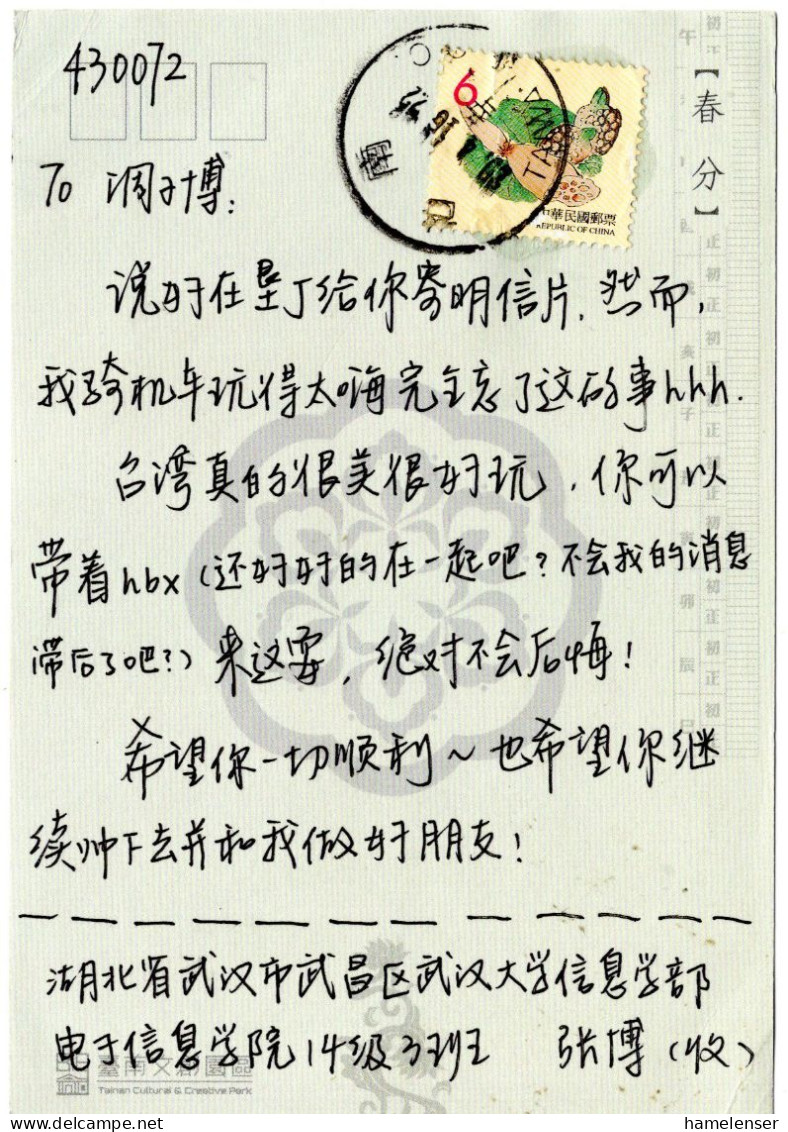 430072
6
中華民國郵票
REPUBLIC OF CHINA
【春分】
To 调子博:
说好在垦丁给你寄明信片. 然而,
我骑机车玩得太嗨完全忘了这码事hhh.
台湾真的很美很好玩, 你可以
带着hbx (还好好的在一起吧? 不会我的消息
滞后了吧?) 来这耍, 绝对不会后悔!
希望你一切顺利~也希望你继
续帅下去并和我做好朋友!
湖北省武汉市武昌区武汉大学信息学部
电子信息学院14级3班 张博 (收)
臺南文創園區
Tainan Cultural & Creative Park
hamelenser